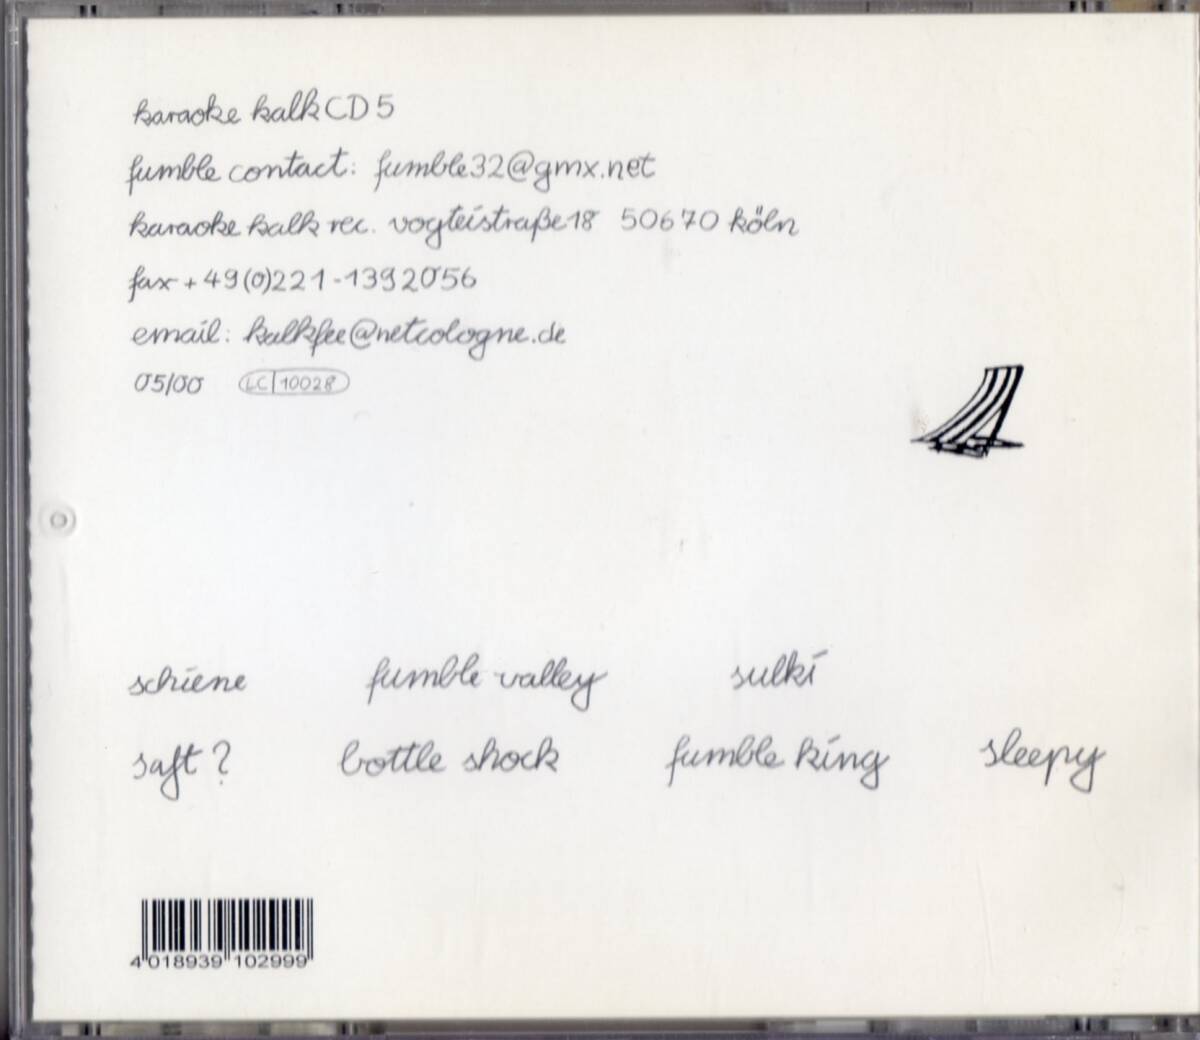 karaoke kalk CD 5
fumble contact: fumble32@gmx.net
karaoke kalk rec. vogteistraße 18 50670 köln
fax +49(0)221-1392056
email: kalkfee@netcologne.de
05/00 LC 10028
schiene fumble valley sulki
saft? bottle shock fumble king sleepy
4 018939 102999